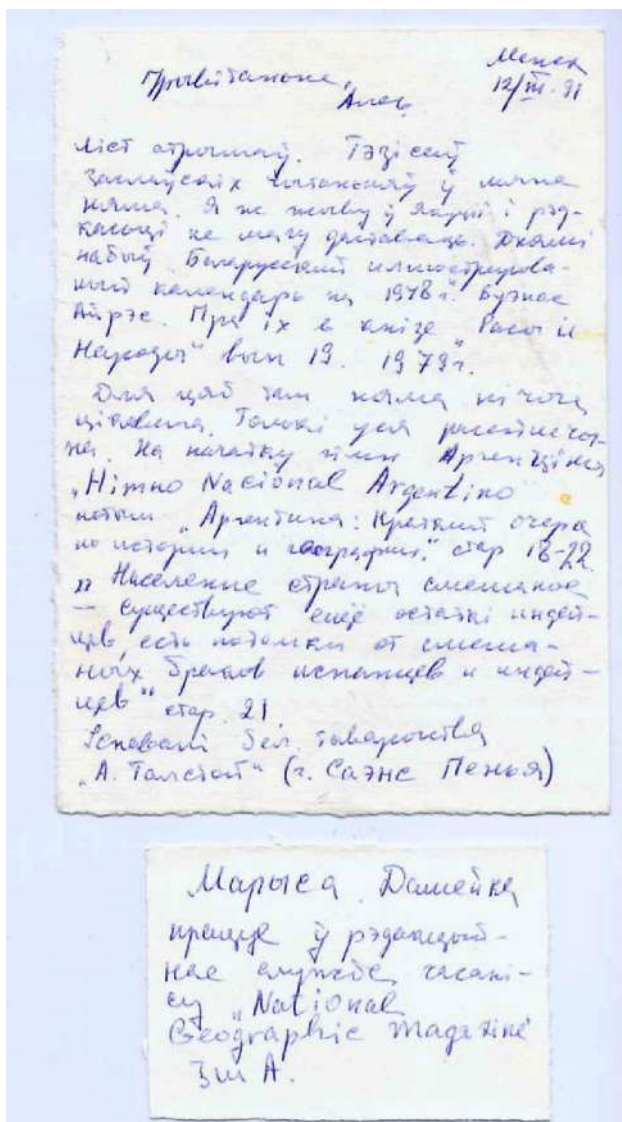 Менск
Прывітаньне, 12/III-91
Алег.
Ліст атрымаў. Тэзісаў
заходніх пытаньняў ў мяне
няма. Я ж жыву ў і рэд-
касьці не магу даставаць. Днямі
набыў "Беларусский иллюстрирова-
ный календарь на 1978 г." Буэнас
Айрэс. Пра іх в кнізе "Расы и
Народы" вып 19. 1979г.
Для цяб там няма нічога
цікавага. Толькі
на. На початку гімн Аргенціны
„Himno Nacional Argentino
потым „Аргентина: Краткий очерк
по истории и географии." стар 18-22
„Население страны смешаное
— существуют ещё остаткі индей-
цев, есть потомки от смеша-
ных браков испанцев и индей-
цев" стар. 21
Існавалі бел. таварыства
„А. Талстой" (г. Саэнс Пенья)
Марыса Дамейка
працуе ў рэдакцый-
нае службе, часапі-
су „National
Geographic magazine
ЗША.